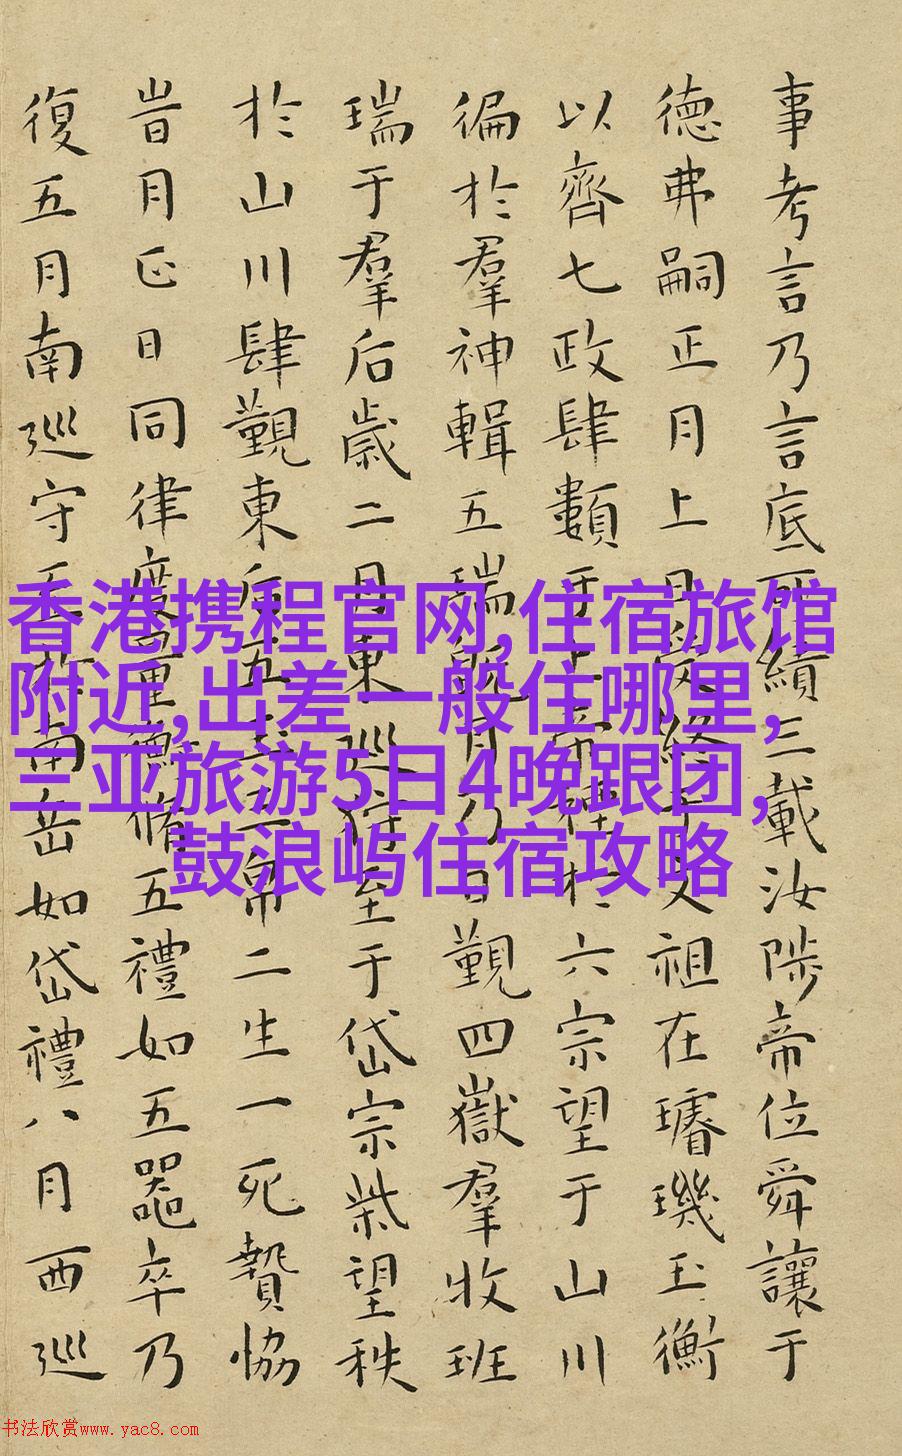 事考言乃言底可績三載汝陟帝位舜讓于
德弗嗣正月上日受終于文祖在璿璣玉衡
以齊七政肆類于上帝禋於六宗望于山川
徧於羣神輯五瑞既月乃日覲四嶽羣牧班
瑞于羣后歲二月東巡狩至于岱宗柴望秩
於山川肆覲東后五玉三帛二生一死贄協
旹月正日同律度量衡脩五禮如五器卒乃
復五月南巡守至于南岳如岱禮八月西巡
香港携程官网,住宿旅馆
附近,出差一般住哪里,
三亚旅游5日4晚跟团,
鼓浪屿住宿攻略
书法欣赏www.yac8.com